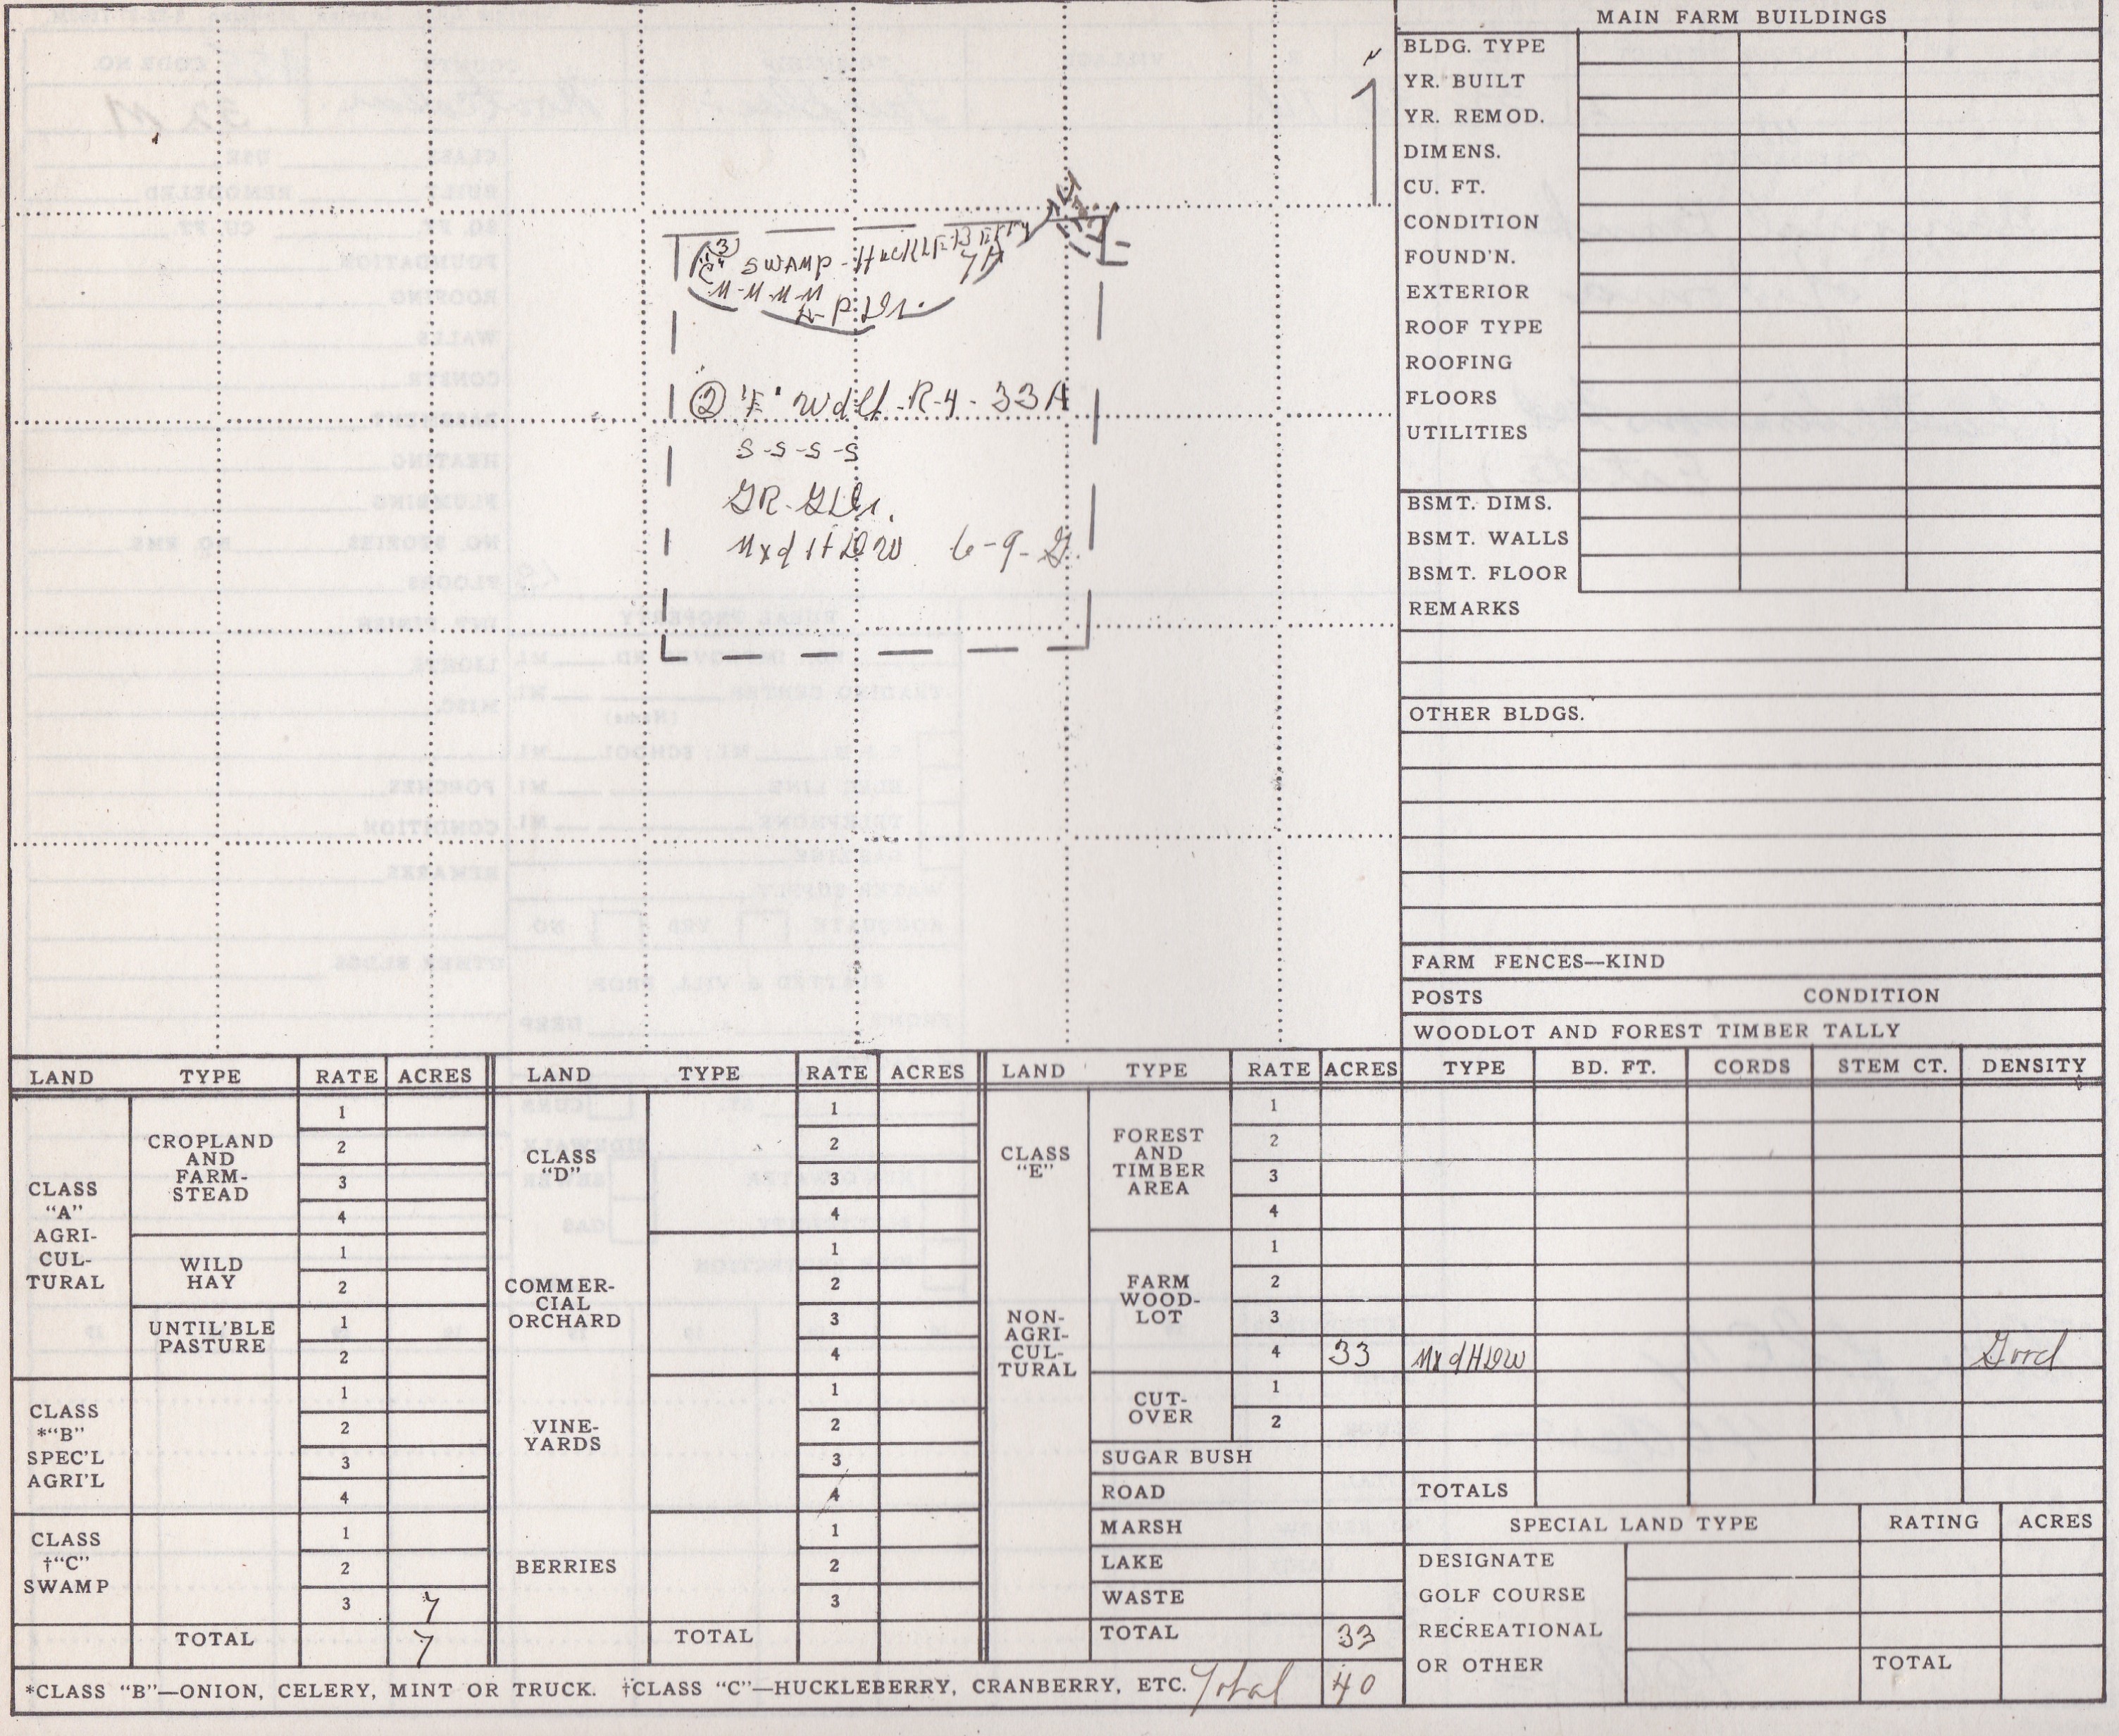 N
1
(3)
"C" SWAMP - HUCKLEBERRY
7A
M-M-M-M
② "E" Wdlt - R-4 - 33A
S-S-S-S
GR-GLDr.
MxdHDW 6-9-G.
MAIN FARM BUILDINGS
BLDG. TYPE
YR. BUILT
YR. REMOD.
DIMENS.
CU. FT.
CONDITION
FOUND'N.
EXTERIOR
ROOF TYPE
ROOFING
FLOORS
UTILITIES
BSMT. DIMS.
BSMT. WALLS
BSMT. FLOOR
REMARKS
OTHER BLDGS.
FARM FENCES—KIND
POSTS CONDITION
WOODLOT AND FOREST TIMBER TALLY
LAND TYPE RATE ACRES
CLASS
"A"
AGRI-
CUL-
TURAL
CROPLAND
AND
FARM-
STEAD
1
2
3
4
WILD
HAY
1
2
UNTIL'BLE
PASTURE
1
2
CLASS
*"B"
SPEC'L
AGRI'L
1
2
3
4
CLASS
†"C"
SWAMP
1
2
3 7
TOTAL 7
LAND TYPE RATE ACRES
CLASS
"D"
COMMER-
CIAL
ORCHARD
1
2
3
4
1
2
3
4
VINE-
YARDS
1
2
3
4
BERRIES
1
2
3
TOTAL
LAND TYPE RATE ACRES
CLASS
"E"
NON-
AGRI-
CUL-
TURAL
FOREST
AND
TIMBER
AREA
1
2
3
4
FARM
WOOD-
LOT
1
2
3
4 33
CUT-
OVER
1
2
SUGAR BUSH
ROAD
MARSH
LAKE
WASTE
TOTAL 33
TYPE BD. FT. CORDS STEM CT. DENSITY
MxdHDW Good
TOTALS
SPECIAL LAND TYPE RATING ACRES
DESIGNATE
GOLF COURSE
RECREATIONAL
OR OTHER TOTAL
*CLASS "B"—ONION, CELERY, MINT OR TRUCK. †CLASS "C"—HUCKLEBERRY, CRANBERRY, ETC. Total 40